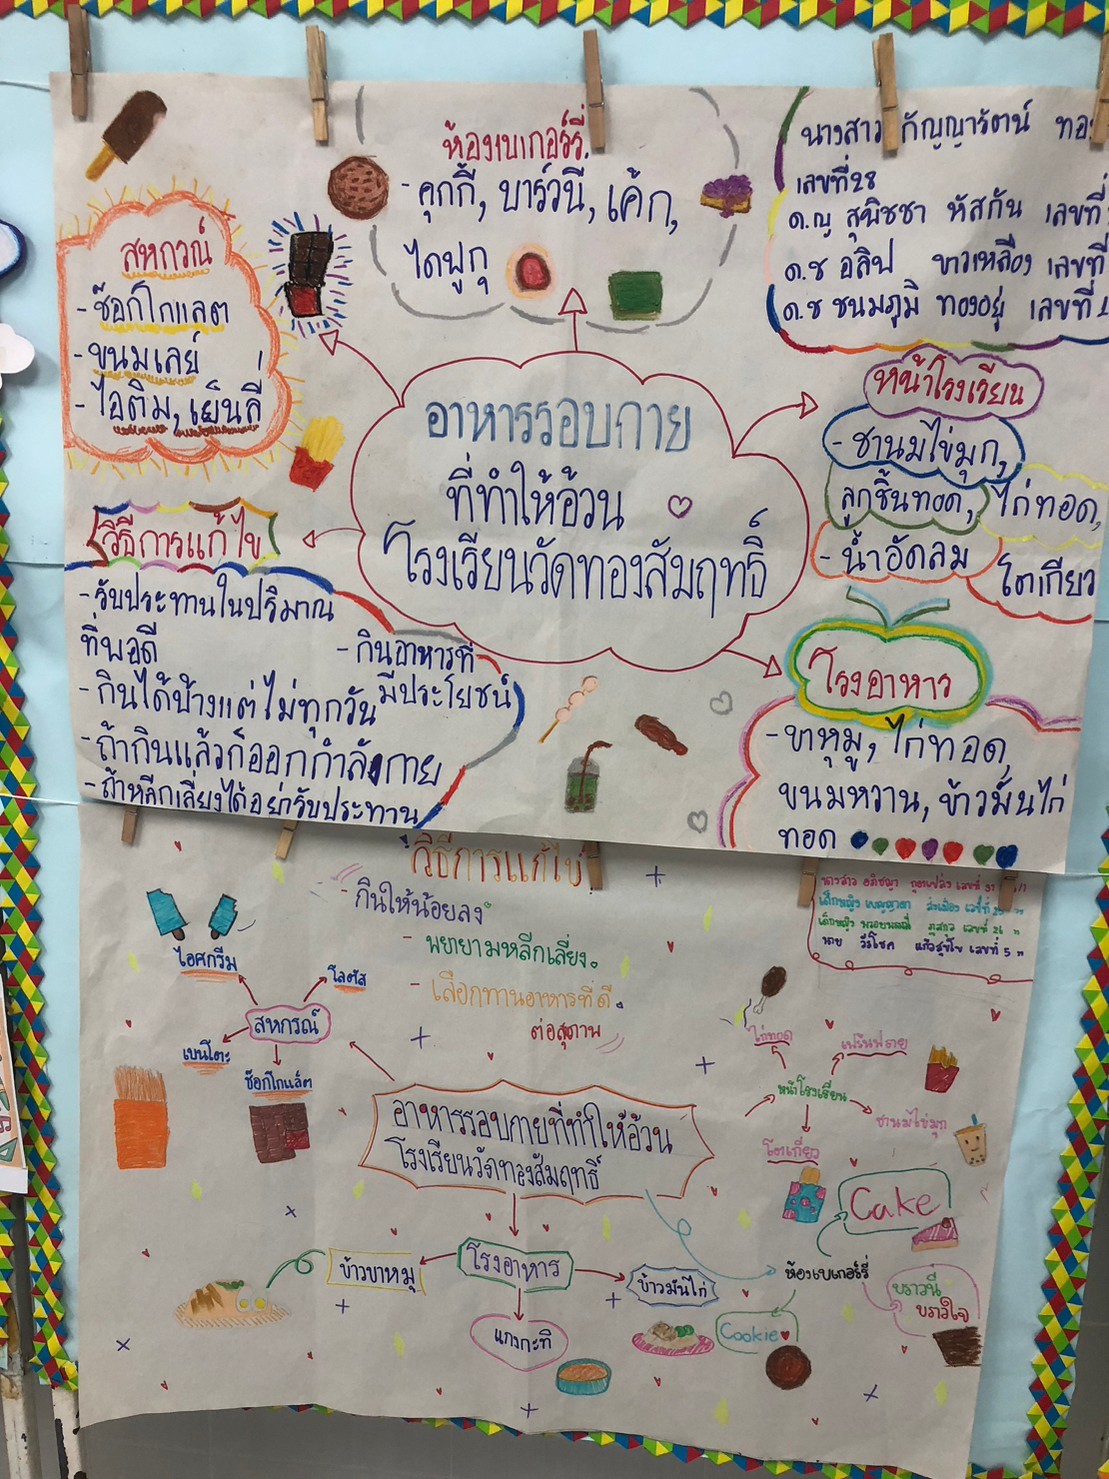 ห้องเบเกอร์รี่
- คุกกี้, บาร์วนี, เค้ก,
ไดฟูกุ
นางสาว กัญญารัตน์
เลขที่28
ด.ญ สุพิชชา หัสกัน เลขที่
ด.ช อลิฟ ขาวเหลือง เลขที่
ด.ช ชนมภูมิ ทองอยู่ เลขที่
สหกรณ์
- ช๊อกโกแลต
- ขนมเลย์
- ไอติม, เย็นลี่
อาหารรอบกาย
ที่ทำให้อ้วน
โรงเรียนวัดทองสัมฤทธิ์
หน้าโรงเรียน
- ชานมไข่มุก,
ลูกชิ้นทอด, ไก่ทอด,
- น้ำอัดลม โตเกียว
วิธีการแก้ไข
- รับประทานในปริมาณ
ที่พอดี
- กินอาหารที่
มีประโยชน์
- กินได้บ้างแต่ไม่ทุกวัน
- ถ้ากินแล้วก็ออกกำลังกาย
- ถ้าหลีกเลี่ยงได้อย่ารับประทาน
โรงอาหาร
- ขาหมู, ไก่ทอด,
ขนมหวาน, ข้าวมันไก่
ทอด
วิธีการแก้ไข
- กินให้น้อยลง
- พยายามหลีกเลี่ยง
- เลือกทานอาหารที่ดี
ต่อสุภาพ
นาย วีรโชค แก้วสุขใข เลขที่ 5 "
ไอศกรีม
โลตัส
สหกรณ์
เบนโตะ
ช๊อกโกแล็ต
อาหารรอบกายที่ทำให้อ้วน
โรงเรียนวัดทองสัมฤทธิ์
ไก่ทอด
เฟร้นฟราย
หน้าโรงเรียน
ชานมไข่มุก
โตเกี่ยว
Cake
โรงอาหาร
ข้าวขาหมุ
ข้าวมันไก่
แกงกะทิ
ห้องเบเกอร์รี่
Cookie
บราวนี่
บราวใจ